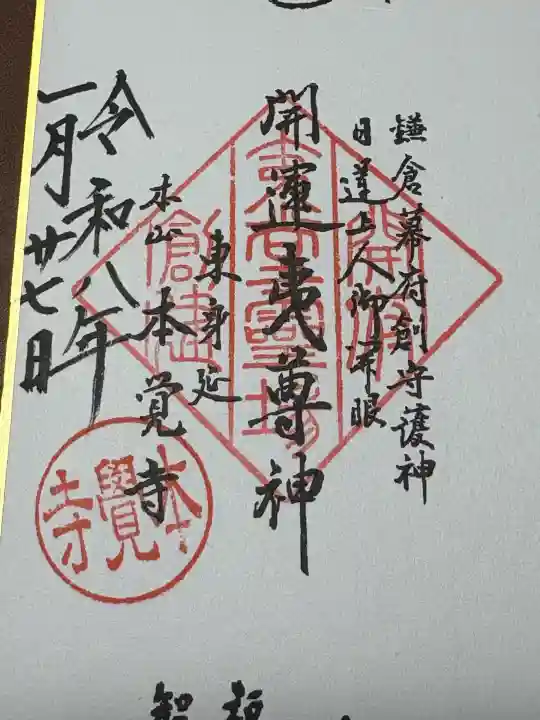 鎌倉幕府創守護神
日蓮上人御開眼
開運夷尊神
東身延
本山本覚寺
令和八年
一月廿七日
本覺寺